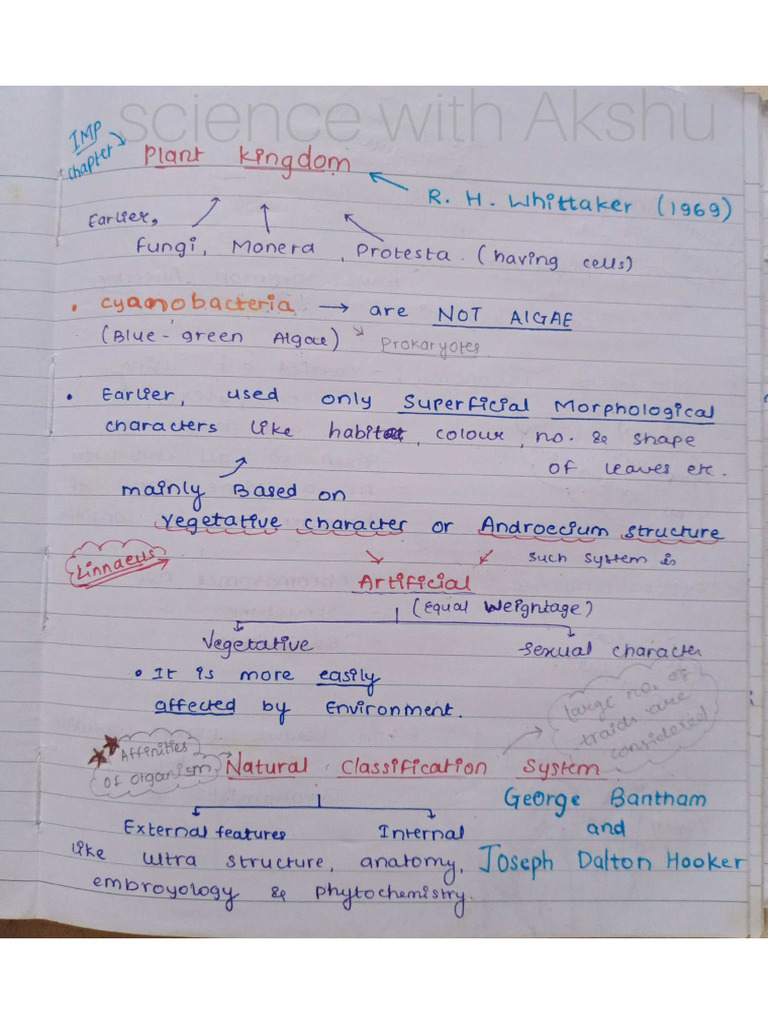 science with Akshu
IMP
chapter
Plant Kingdom
R. H. Whittaker (1969)
Earlier,
Fungi, Monera, Protesta. (having cells)
• cyanobacteria → are NOT AlGAE
(Blue-green Algae) Prokaryotes
• Earlier, used only Superficial Morphological
characters like habitat, colour, no. & shape
of leaves etc.
mainly Based on
vegetative character or Androecium structure
Linnaeus
such system is
Artificial
(Equal Weightage)
Vegetative sexual character
• It is more easily
affected by Environment.
large no. of
traids are
considered
Affinities
of organism
Natural Classification System
George Bantham
and
Joseph Dalton Hooker
External features Internal
like ultra structure, anatomy,
embroyology & phytochemistry.